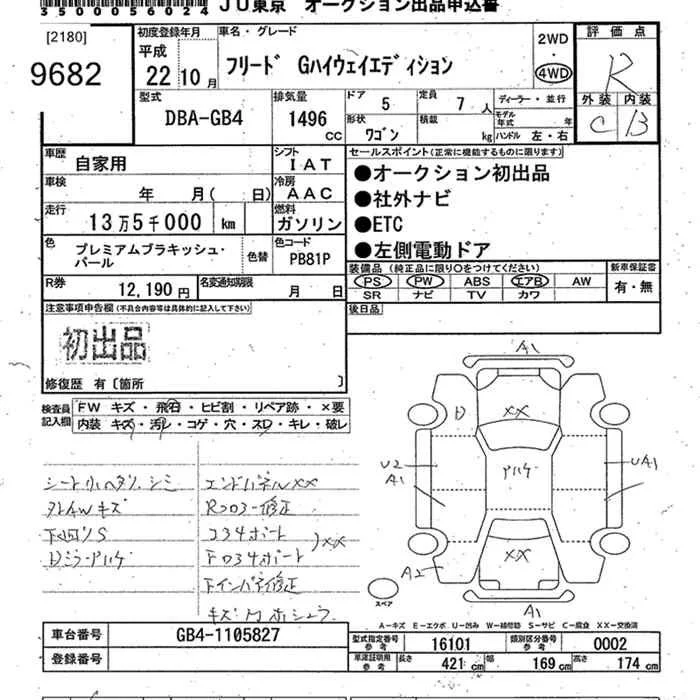 3500056024 JU東京 オークション出品申込書
[2180]
9682
初度登録年月
平成
22年10月
車名・グレード
フリード Gハイウェイエディション
2WD
・
4WD
評価点
R
外装 内装
C B
型式
DBA-GB4
排気量
1496
CC
ドア 5
定員 7人
形状 ワゴン
積載 kg
ディーラー・並行
モデル年式 年
ハンドル 左・右
車歴 自家用
シフト IAT
車検 年 月( 日)
冷房 AAC
走行 13万5千000 km
燃料 ガソリン
色 プレミアムブラキッシュ・パール
色替
色コード PB81P
R券 12,190円
名変通知期限 月 日
セールスポイント(正常に機能するものに限ります)
●オークション初出品
●社外ナビ
●ETC
●左側電動ドア
装備品(純正品に限り○をつけてください)
PS PW ABS エアB AW
SR ナビ TV カワ
新車保証書
有・無
後日品
注意事項申告欄(不具合内容等は具体的に記入して下さい)
初出品
修復歴 有〔箇所 〕
検査員記入欄
FW キズ・飛石・ヒビ割・リペア跡・×要
内装 キズ・汚レ・コゲ・穴・スレ・キレ・破レ
シミ
エンドパネルXX
キズ
修正
A1
D
XX
U2
A1
UA1
XX
A2
A1
スペア
A-キズ E-エクボ U-凹み W-補修跡 S-サビ C-腐食 XX-交換済
車台番号 GB4-1105827
登録番号
型式指定番号参考 16101
類別区分番号参考 0002
車庫証明用参考 長さ 421cm 幅 169cm 高さ 174cm